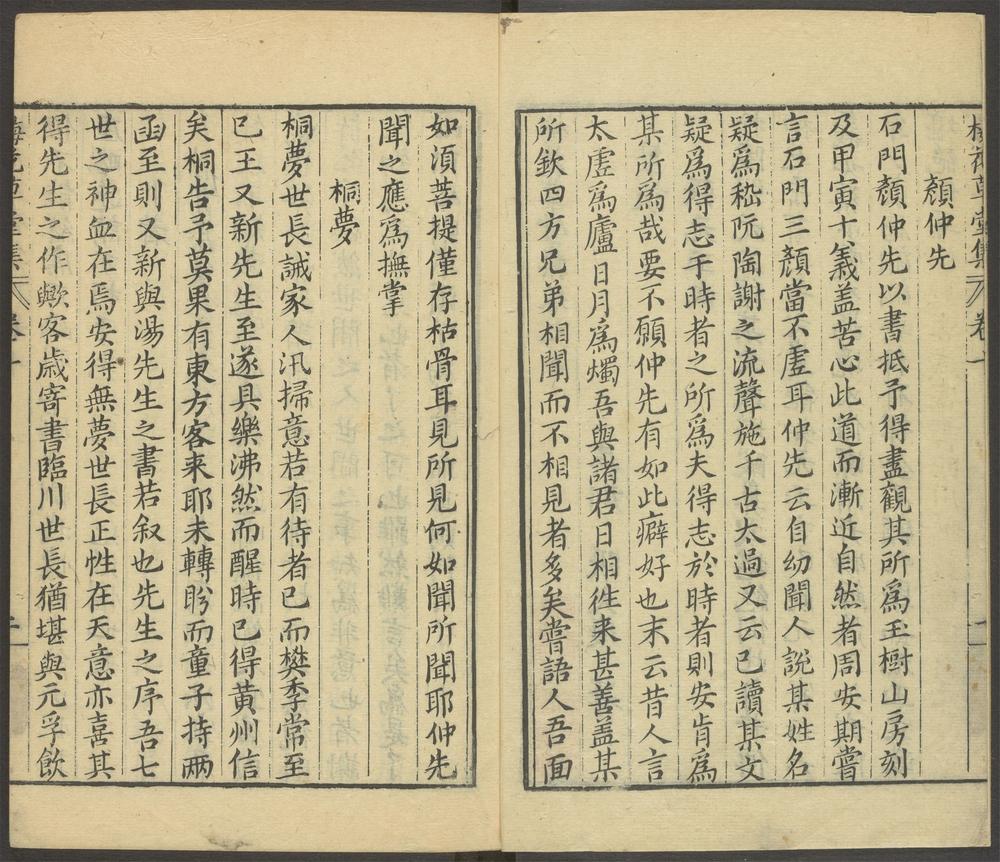 顏仲先
石門顏仲先以書抵予得盡觀其所爲玉樹山房刻
及甲寅十義盖苦心此道而漸近自然者周安期嘗
言石門三顏當不虗耳仲先云自幼聞人說某姓名
疑爲嵇阮陶謝之流聲施千古太過又云已讀某文
疑爲得志于時者之所爲夫得志於時者則安肯爲
某所爲哉要不願仲先有如此癖好也末云昔人言
太虗爲廬日月爲燭吾與諸君日相徃来甚善盖某
所欽四方兄弟相聞而不相見者多矣嘗語人吾面
如須菩提僅存枯骨耳見所見何如聞所聞耶仲先
聞之應爲撫掌
桐夢
桐夢世長誡家人汛掃意若有待者已而樊季常至
已王又新先生至遂具樂沸然而醒時已得黃州信
矣桐告予莫果有東方客来耶未轉盻而童子持兩
函至則又新與湯先生之書若叙也先生之序吾七
世之神血在焉安得無夢世長正性在天意亦喜其
得先生之作歟客歳寄書臨川世長猶堪與元孚飲
梅花草堂集 卷十